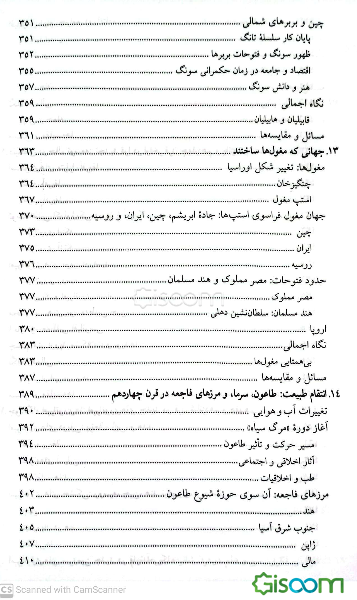 چین و بربرهای شمالی ........ ۳۵۱
پایان کار سلسلهٔ تانگ ........ ۳۵۱
ظهور سونگ و فتوحات بربرها ........ ۳۵۲
اقتصاد و جامعه در زمان حکمرانی سونگ ........ ۳۵۵
هنر و دانش سونگ ........ ۳۵۷
نگاه اجمالی ........ ۳۵۹
قابیلیان و هابیلیان ........ ۳۵۹
مسائل و مقایسه‌ها ........ ۳۶۱
۱۳. جهانی که مغول‌ها ساختند ........ ۳۶۳
مغول‌ها: تغییر شکل اوراسیا ........ ۳۶۴
چنگیزخان ........ ۳۶۴
استپ مغول ........ ۳۶۷
جهان مغول فراسوی استپ‌ها: جادهٔ ابریشم، چین، ایران، و روسیه ........ ۳۷۰
چین ........ ۳۷۳
ایران ........ ۳۷۵
روسیه ........ ۳۷۶
حدود فتوحات: مصر مملوک و هند مسلمان ........ ۳۷۷
مصر مملوک ........ ۳۷۷
هند مسلمان: سلطان‌نشین دهلی ........ ۳۷۷
اروپا ........ ۳۸۰
نگاه اجمالی ........ ۳۸۳
بی‌همتایی مغول‌ها ........ ۳۸۳
مسائل و مقایسه‌ها ........ ۳۸۷
۱۴. انتقام طبیعت: طاعون، سرما، و مرزهای فاجعه در قرن چهاردهم ........ ۳۸۹
تغییرات آب و هوایی ........ ۳۹۰
آغاز دورهٔ «مرگ سیاه» ........ ۳۹۲
مسیر حرکت و تأثیر طاعون ........ ۳۹۴
آثار اخلاقی و اجتماعی ........ ۳۹۸
طب و اخلاقیات ........ ۳۹۸
مرزهای فاجعه: آن سوی حوزهٔ شیوع طاعون ........ ۴۰۲
هند ........ ۴۰۳
جنوب شرق آسیا ........ ۴۰۵
ژاپن ........ ۴۰۷
مالی ........ ۴۱۰
CS Scanned with CamScanner
Gisoom